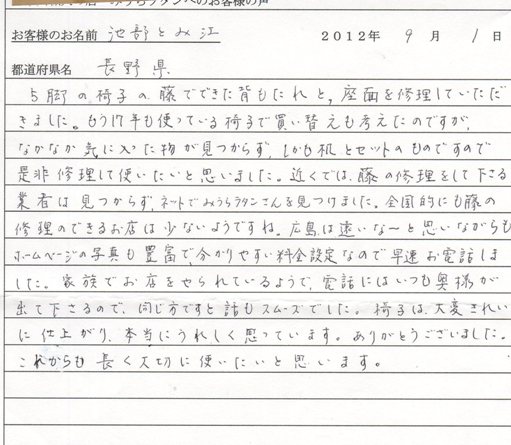 みうらラタンへのお客様の声
お客様のお名前 池部とみ江 2012年 9月 1日
都道府県名 長野県
5脚の椅子の藤でできた背もたれと、座面を修理していただ
きました。もう17年も使っている椅子で買い替えも考えたのですが、
なかなか気に入った物が見つからず、しかも机とセットのものですので
是非修理して使いたいと思いました。近くでは、藤の修理をして下さる
業者は見つからず、ネットでみうらラタンさんを見つけました。全国的にも藤の
修理のできるお店は少ないようですね。広島は遠いな〜と思いながらも
ホームページの写真も豊富で分かりやすい料金設定なので早速お電話しま
した。家族でお店をやられているようで、電話にはいつも奥様が
出て下さるので、同じ方ですと話もスムーズでした。椅子は、大変きれい
に仕上がり、本当にうれしく思っています。ありがとうございました。
これからも長く大切に使いたいと思います。